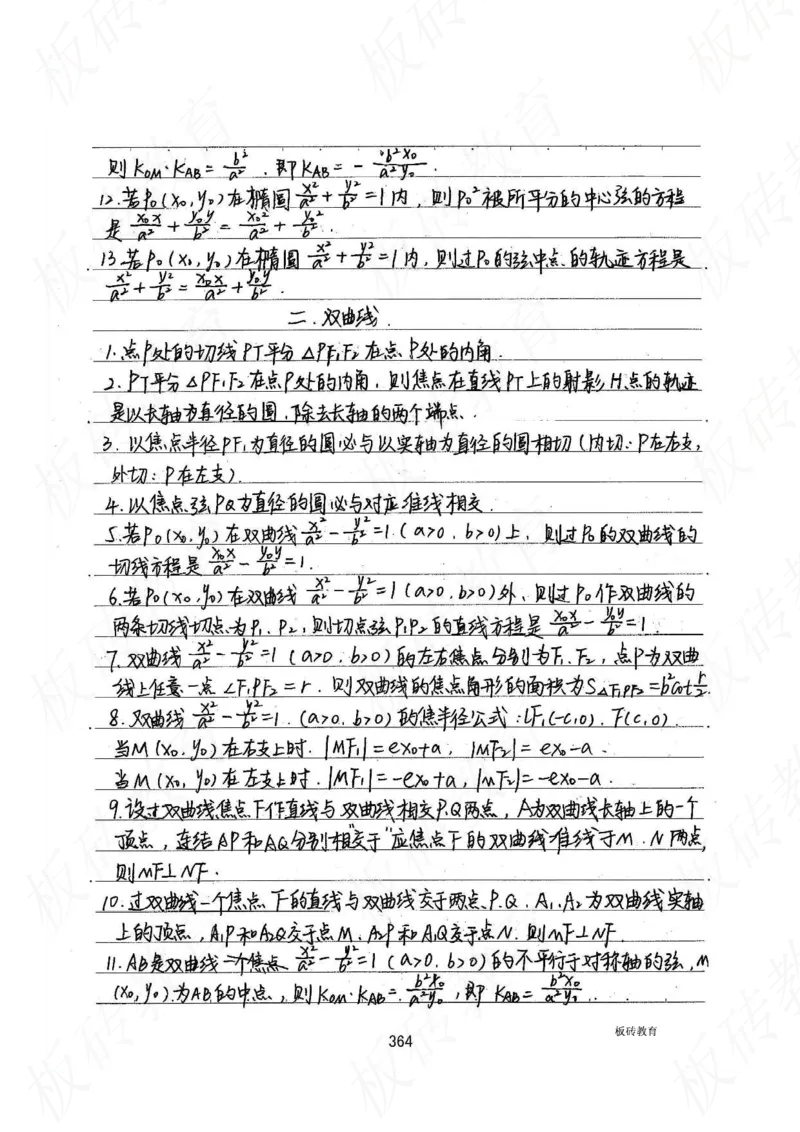 则 K_OM·K_AB = b²/a². 即 K_AB = - b²x₀/a²y₀.
12.若P₀(x₀,y₀)在椭圆 x²/a² + y²/b² = 1内,则P₀²被所平分的中心弦的方程
是 x₀x/a² + y₀y/b² = x₀²/a² + y₀²/b².
13.若P₀(x₀,y₀)在椭圆 x²/a² + y²/b² = 1内,则过P₀的弦中点的轨迹方程是
x²/a² + y²/b² = x₀x/a² + y₀y/b².
二.双曲线.
1.点P处的切线PT平分△PF₁F₂在点P处的内角.
2.PT平分△PF₁F₂在点P处的内角,则焦点在直线PT上的射影H点的轨迹
是以长轴为直径的圆,除去长轴的两个端点.
3.以焦点半径PF₁为直径的圆必与以实轴为直径的圆相切(内切:P在右支,
外切:P在左支).
4.以焦点弦PQ为直径的圆必与对应准线相交.
5.若P₀(x₀,y₀)在双曲线 x²/a² - y²/b² = 1.(a>0,b>0)上,则过P₀的双曲线的
切线方程是 x₀x/a² - y₀y/b² = 1.
6.若P₀(x₀,y₀)在双曲线 x²/a² - y²/b² = 1(a>0,b>0)外,则过P₀作双曲线的
两条切线切点为P₁、P₂,则切点弦P₁P₂的直线方程是 x₀x/a² - y₀y/b² = 1.
7.双曲线 x²/a² - y²/b² = 1(a>0,b>0)的左右焦点分别为F₁、F₂,点P为双曲
线上任意一点∠F₁PF₂=r.则双曲线的焦点角形的面积为S△F₁PF₂=b²cot r/2.
8.双曲线 x²/a² - y²/b² = 1.(a>0,b>0)的焦半径公式:LF₁(-c,0).F(c,0).
当M(x₀,y₀)在右支上时.|MF₁|=ex₀+a,|MF₂|=ex₀-a.
当M(x₀,y₀)在左支上时.|MF₁|=-ex₀+a,|MF₂|=-ex₀-a.
9.设过双曲线焦点F作直线与双曲线相交P.Q两点,A为双曲线长轴上的一个
顶点,连结AP和AQ分别相交于"应焦点F的双曲线准线于M.N两点,
则MF⊥NF.
10.过双曲线一个焦点F的直线与双曲线交于两点、P.Q.A₁、A₂为双曲线实轴
上的顶点,A₁P和A₂Q交于点M、A₂P和A₁Q交于点N.则MF⊥NF.
11.AB是双曲线一个焦点 x²/a² - y²/b² = 1(a>0,b>0)的不平行于对称轴的弦,M
(x₀,y₀)为AB的中点,则K_OM·K_AB = b²x₀/a²y₀,即 K_AB = b²x₀/a²y₀.
板砖教育
364